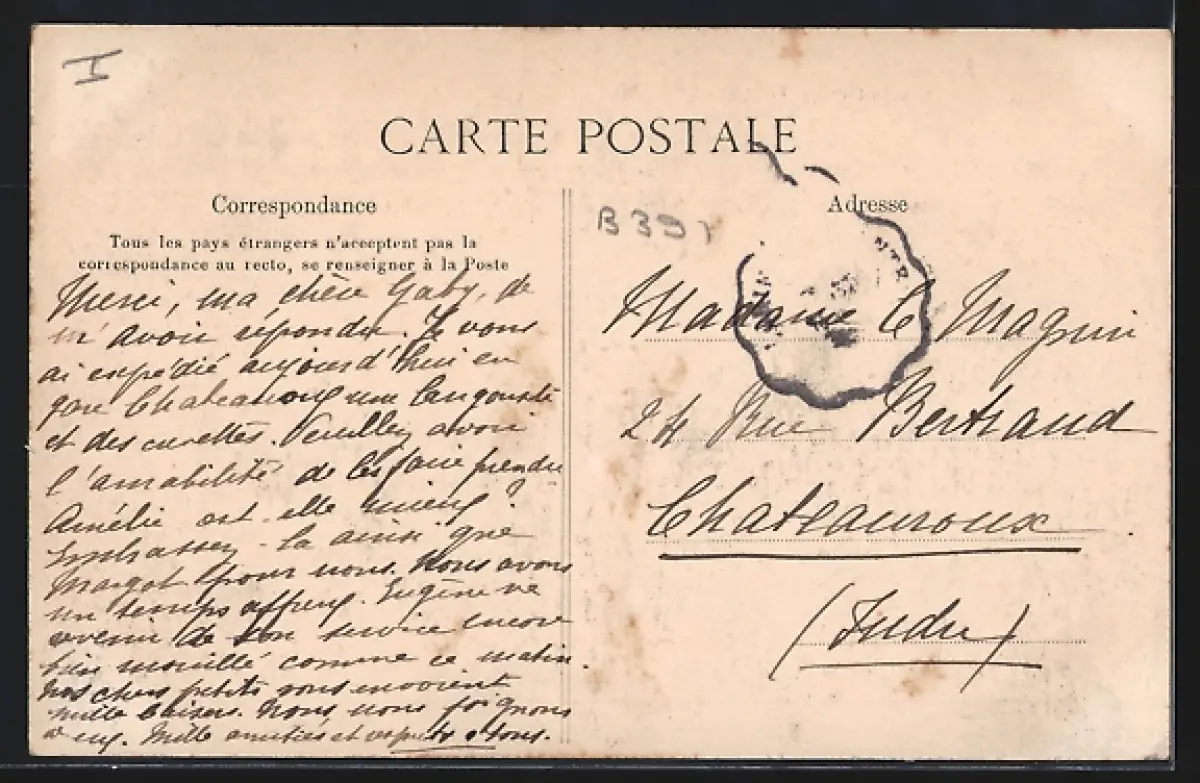 I
CARTE POSTALE
Correspondance
Tous les pays étrangers n'acceptent pas la
correspondance au recto, se renseigner à la Poste
Merci, ma chère Gaby, de
m'avoir répondu. Je vous
ai expédié aujourd'hui en
gare Chateauroux une langouste
et des crevettes. Veuillez avoir
l'amabilité de les faire prendre
Amélie est-elle mieux ?
Embrassez-la ainsi que
Margot pour nous. Nous avons
un temps affreux. Eugène va
revenir de son service encore
bien mouillé comme ce matin.
Nos chers petits vous envoient
mille baisers. Nous nous joignons
à eux. Mille amitiés et respects à tous.
Adresse
B 39
Madame C Magnin
24 Rue Bertrand
Chateauroux
(Indre)